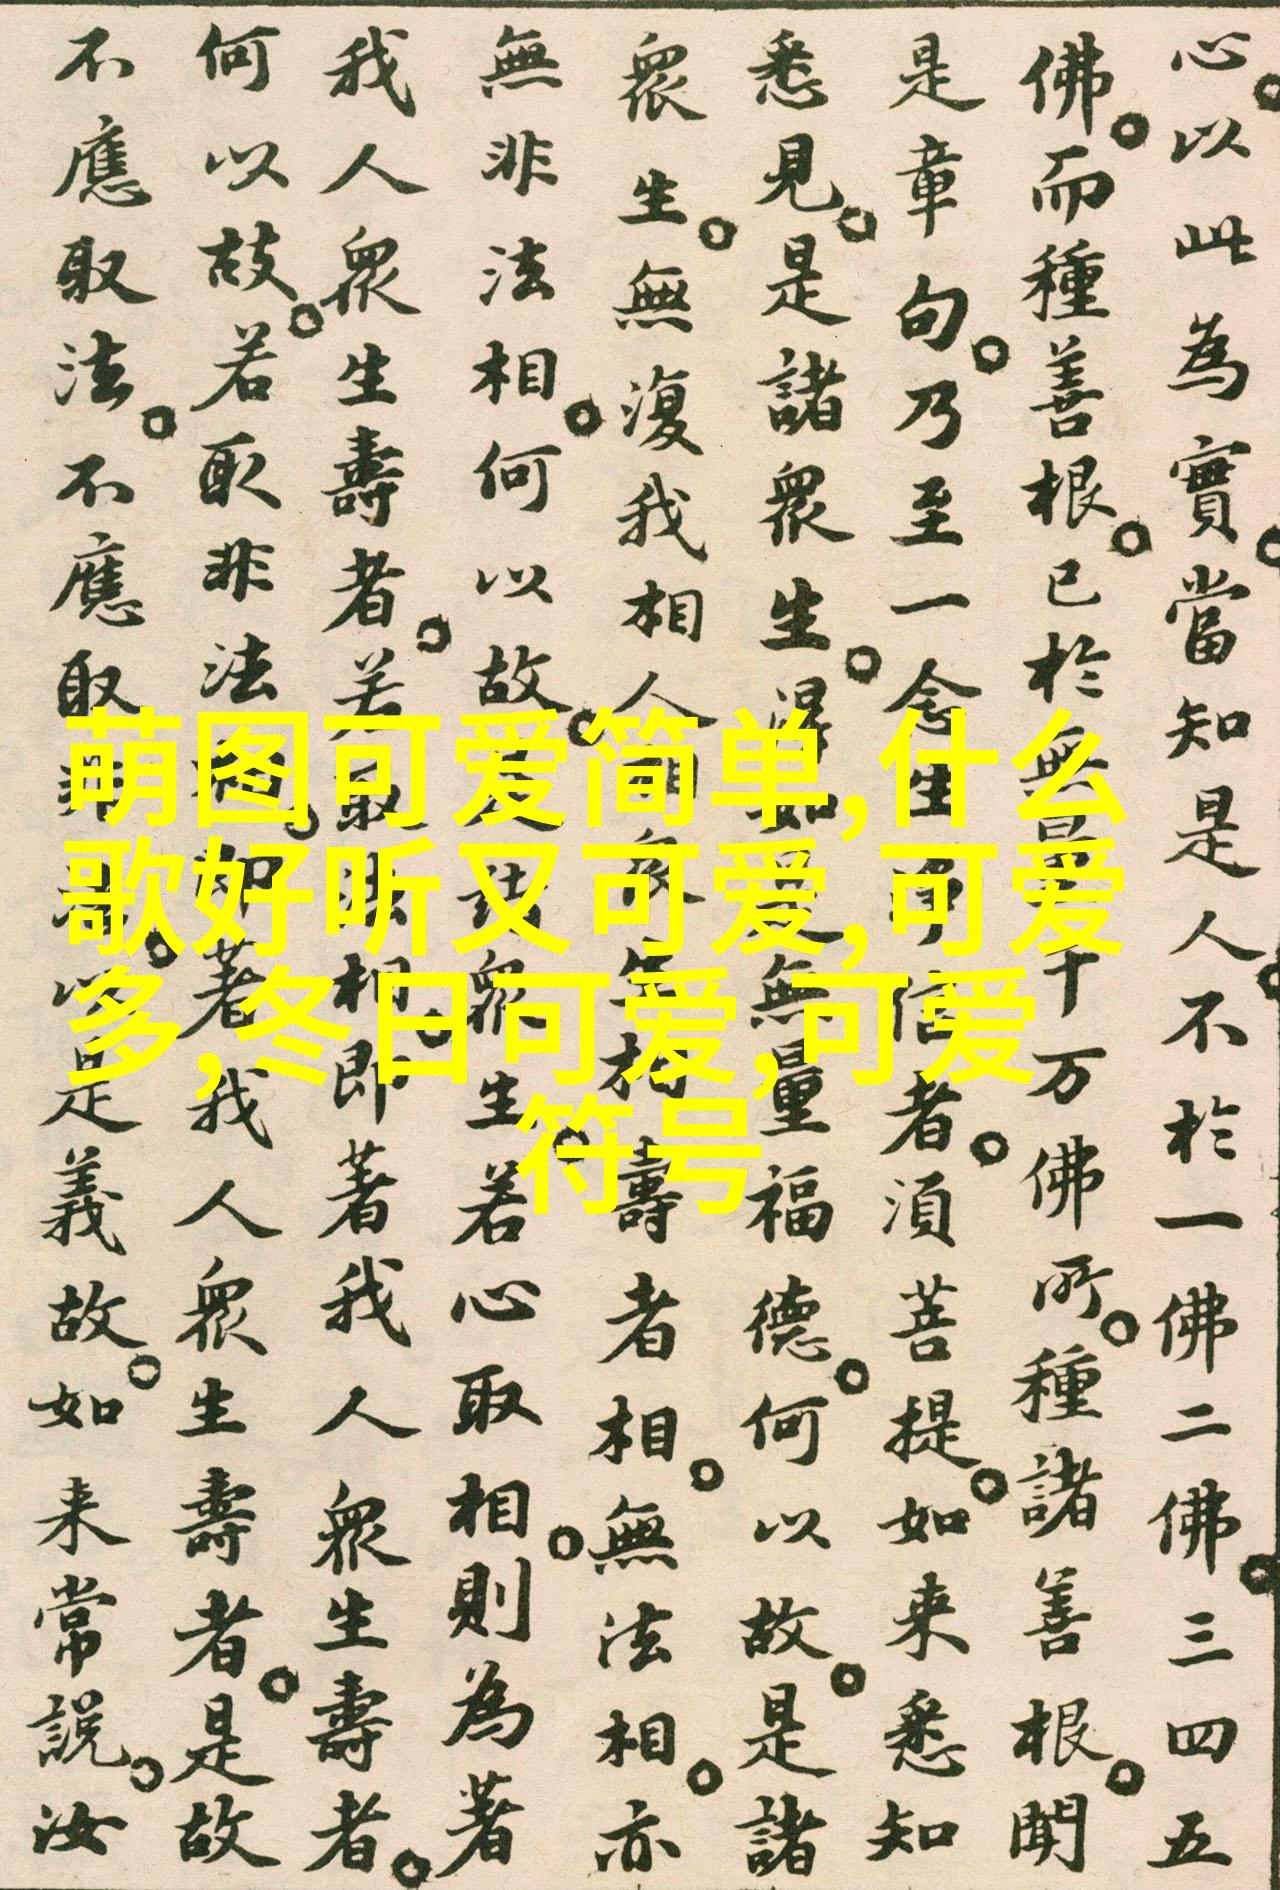 心。以此為實。當知是人。不於一佛二佛。三四五
佛。而種善根。已於無量千万佛所。種諸善根。聞
是章句。乃至一念生淨信者。須菩提。如来悉知
悉見。是諸眾生。得如是無量福德。何以故。是諸
眾生。無復我相人相眾生相壽者相。無法相。亦
無非法相。何以故。是諸眾生。若心取相。則為著
我人眾生壽者。若取法相。即著我人眾生壽者。
何以故。若取非法相。即著我人眾生壽者。是故
不應取法。不應取非法。以是義故。如来常說。汝
萌图可爱简单,什么
歌好听又可爱,可爱
多,冬日可爱,可爱
符号